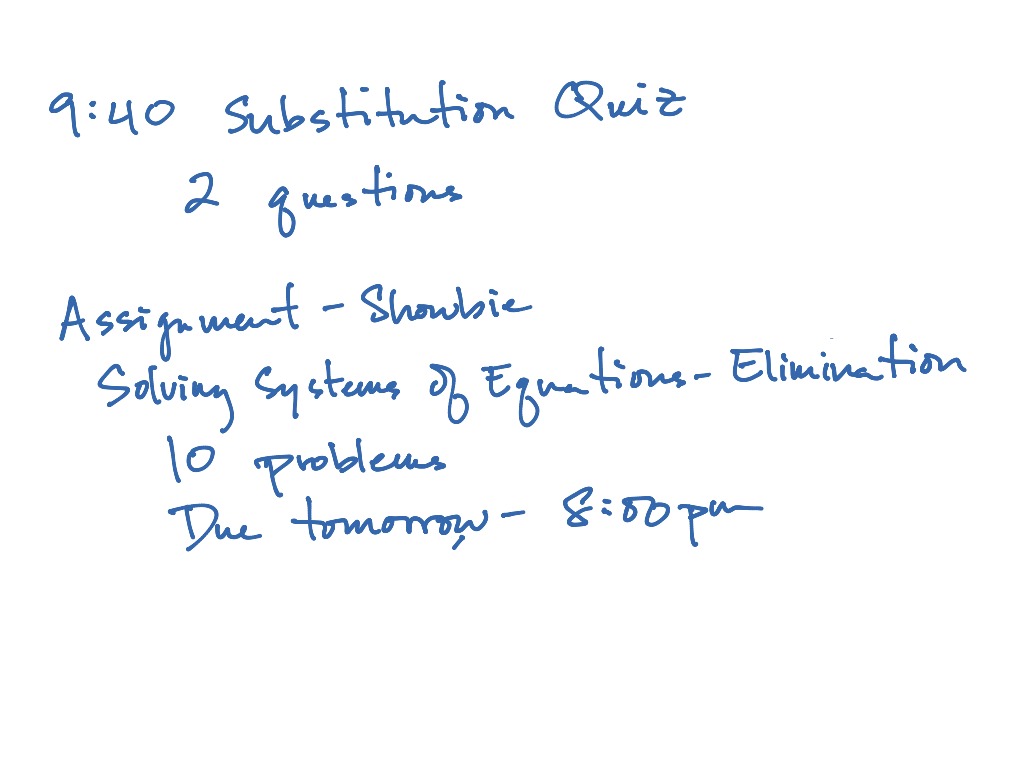 9:40 Substitution Quiz
2 questions
Assignment - Showbie
Solving Systems of Equations - Elimination
10 problems
Due tomorrow - 8:00 pm